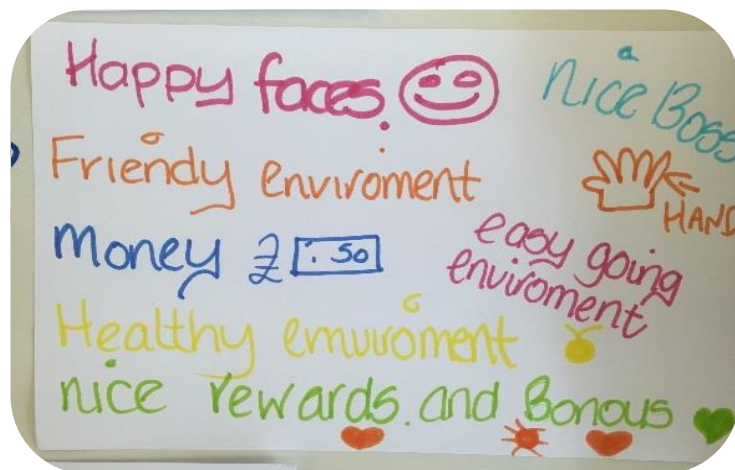 Happy faces.
nice Boss
Friendy enviroment
HAND
Money £ 50
easy going
enviroment
Healthy emuiroment
nice rewards. and Bonous